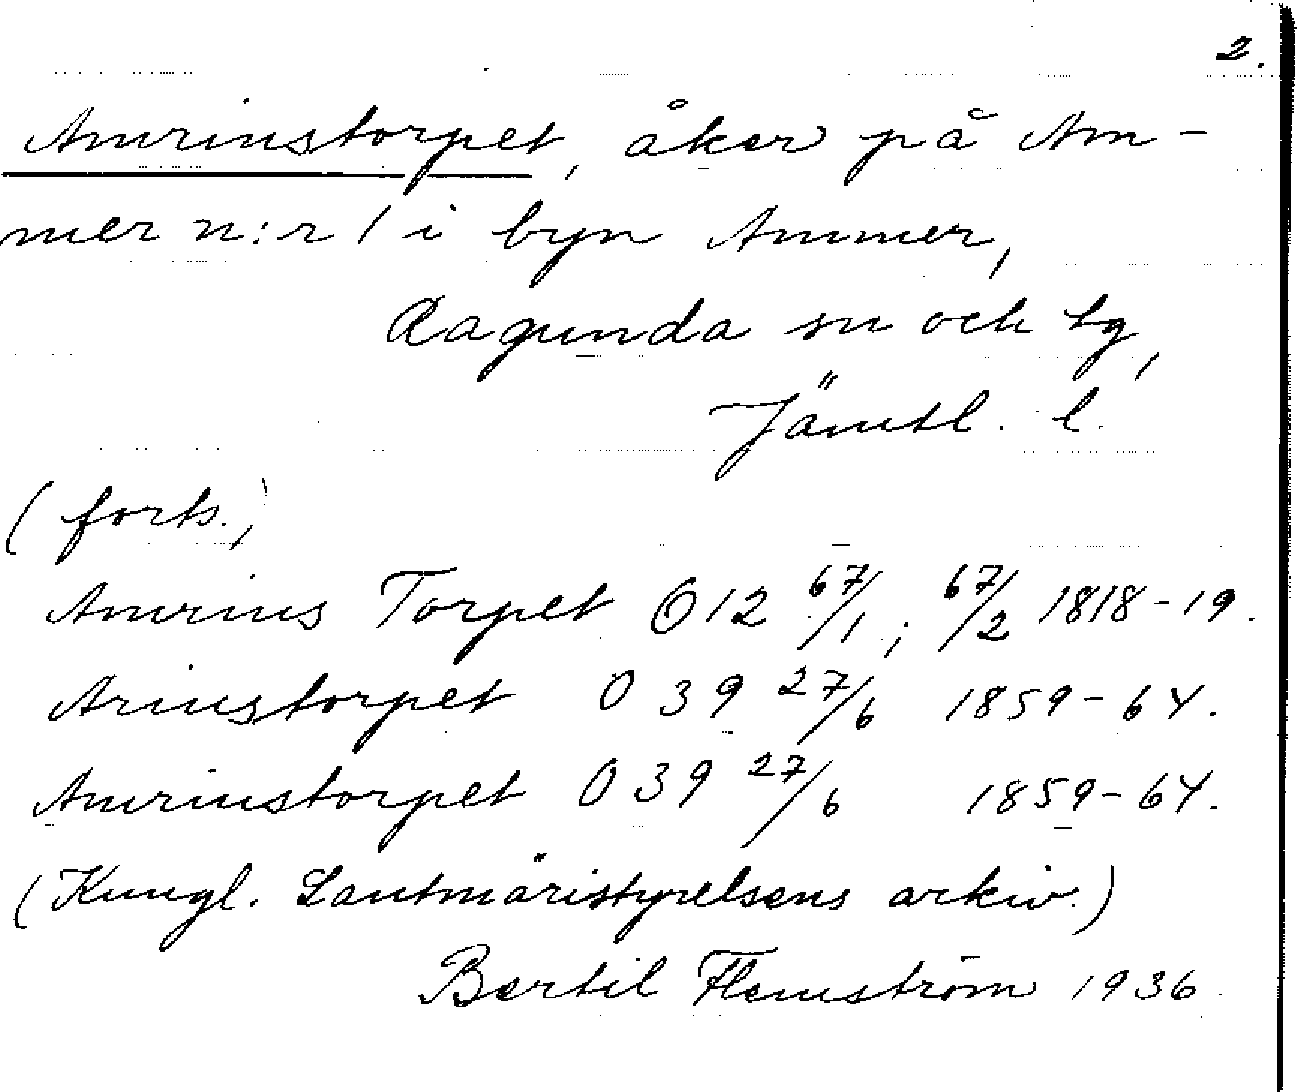 2.
Amrinstorpet, åker på Am-
mer n:r 1 i byn Ammer,
Ragunda sn och tg,
Jämtl. l.
(forts.)
Amrins Torpet O12 67/1; 67/2 1818-19.
Arinstorpet O 39 27/6 1859-64.
Amrinstorpet O 39 27/6 1859-64.
(Kungl. Lantmäristyrelsens arkiv.)
Bertil Flemström 1936.